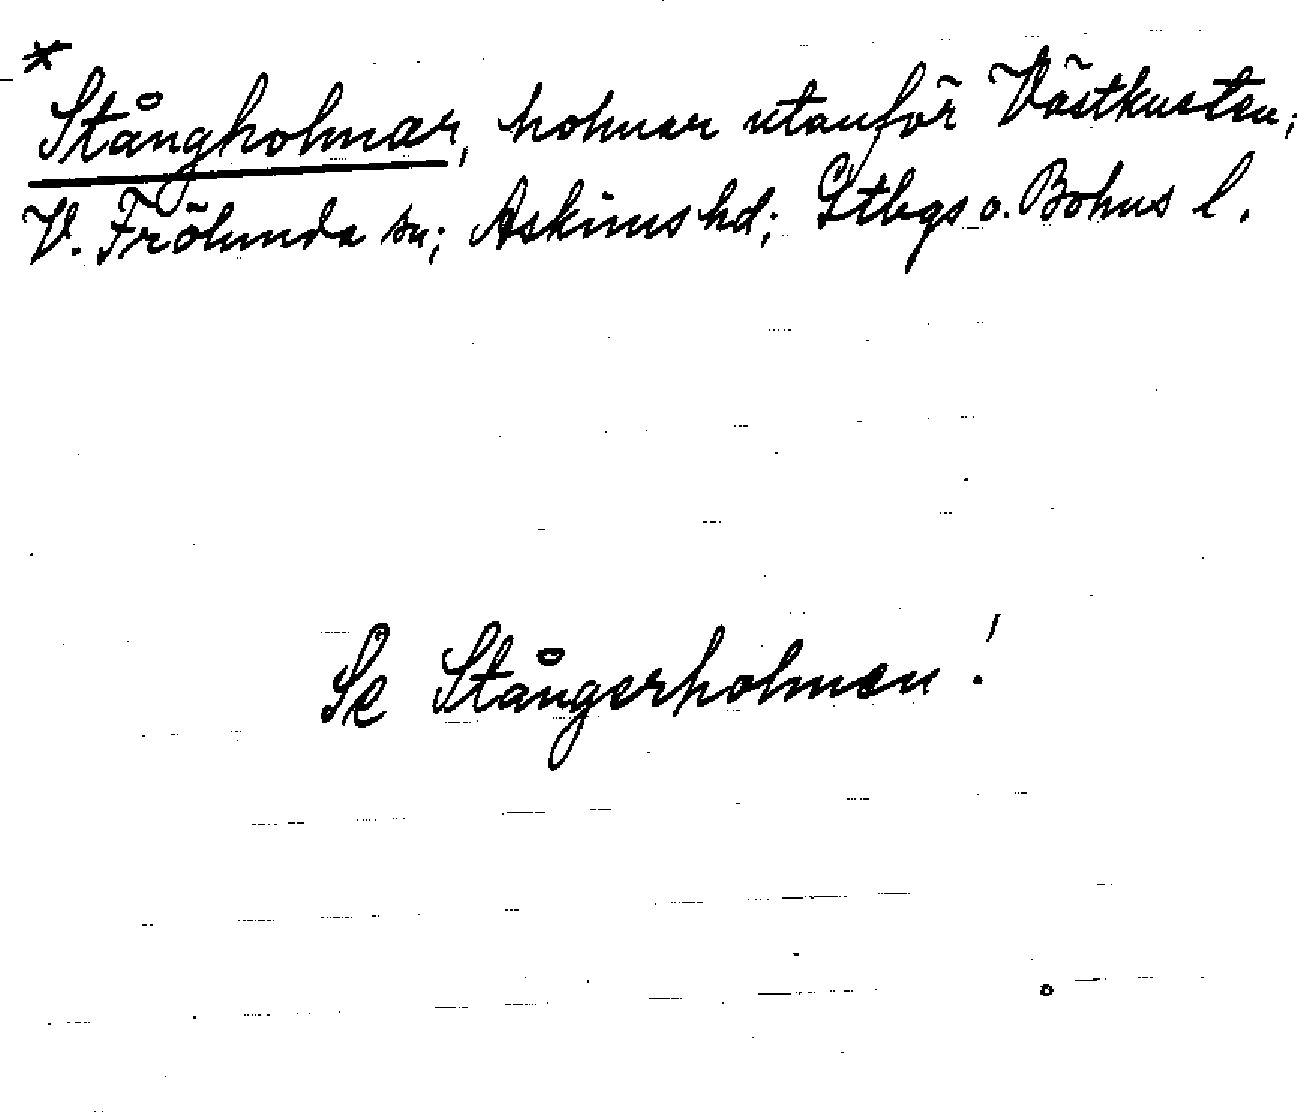 * Stångholmar, holmar utanför Västkusten;
V. Frölunda sn; Askims hd; Gtbgs o. Bohus l.
Se Stångerholmen!